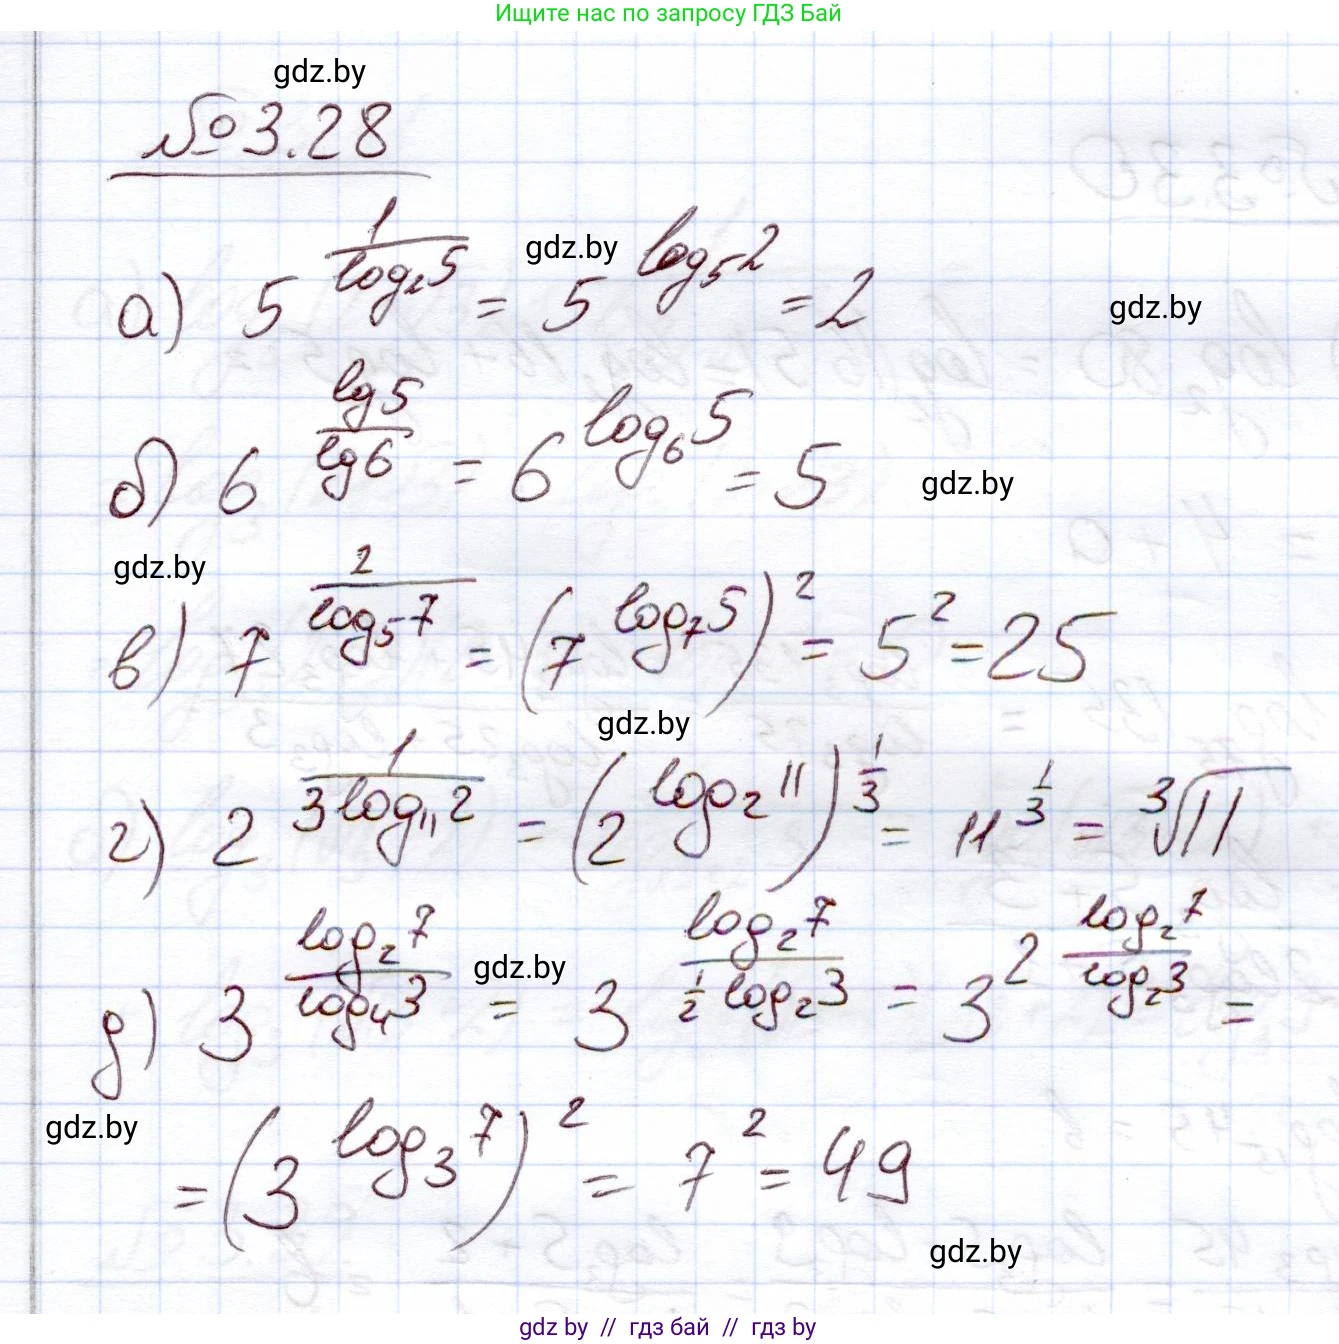 Ищите нас по запросу ГДЗ Бай
gdz.by
№3.28
а) 5^(1/log₂5) = 5^(log₅2) = 2
gdz.by
gdz.by
б) 6^(lg5/lg6) = 6^(log₆5) = 5
gdz.by
gdz.by
в) 7^(2/log₅7) = (7^(log₇5))² = 5² = 25
gdz.by
г) 2^(1/(3log₁₁2)) = (2^(log₂11))^(1/3) = 11^(1/3) = ³√11
д) 3^(log₂7/log₄3) = 3^(log₂7/(1/2 log₂3)) = 3^(2 log₂7/log₂3) =
gdz.by
gdz.by
= (3^(log₃7))² = 7² = 49
gdz.by
gdz by // гдз бай // гдз by